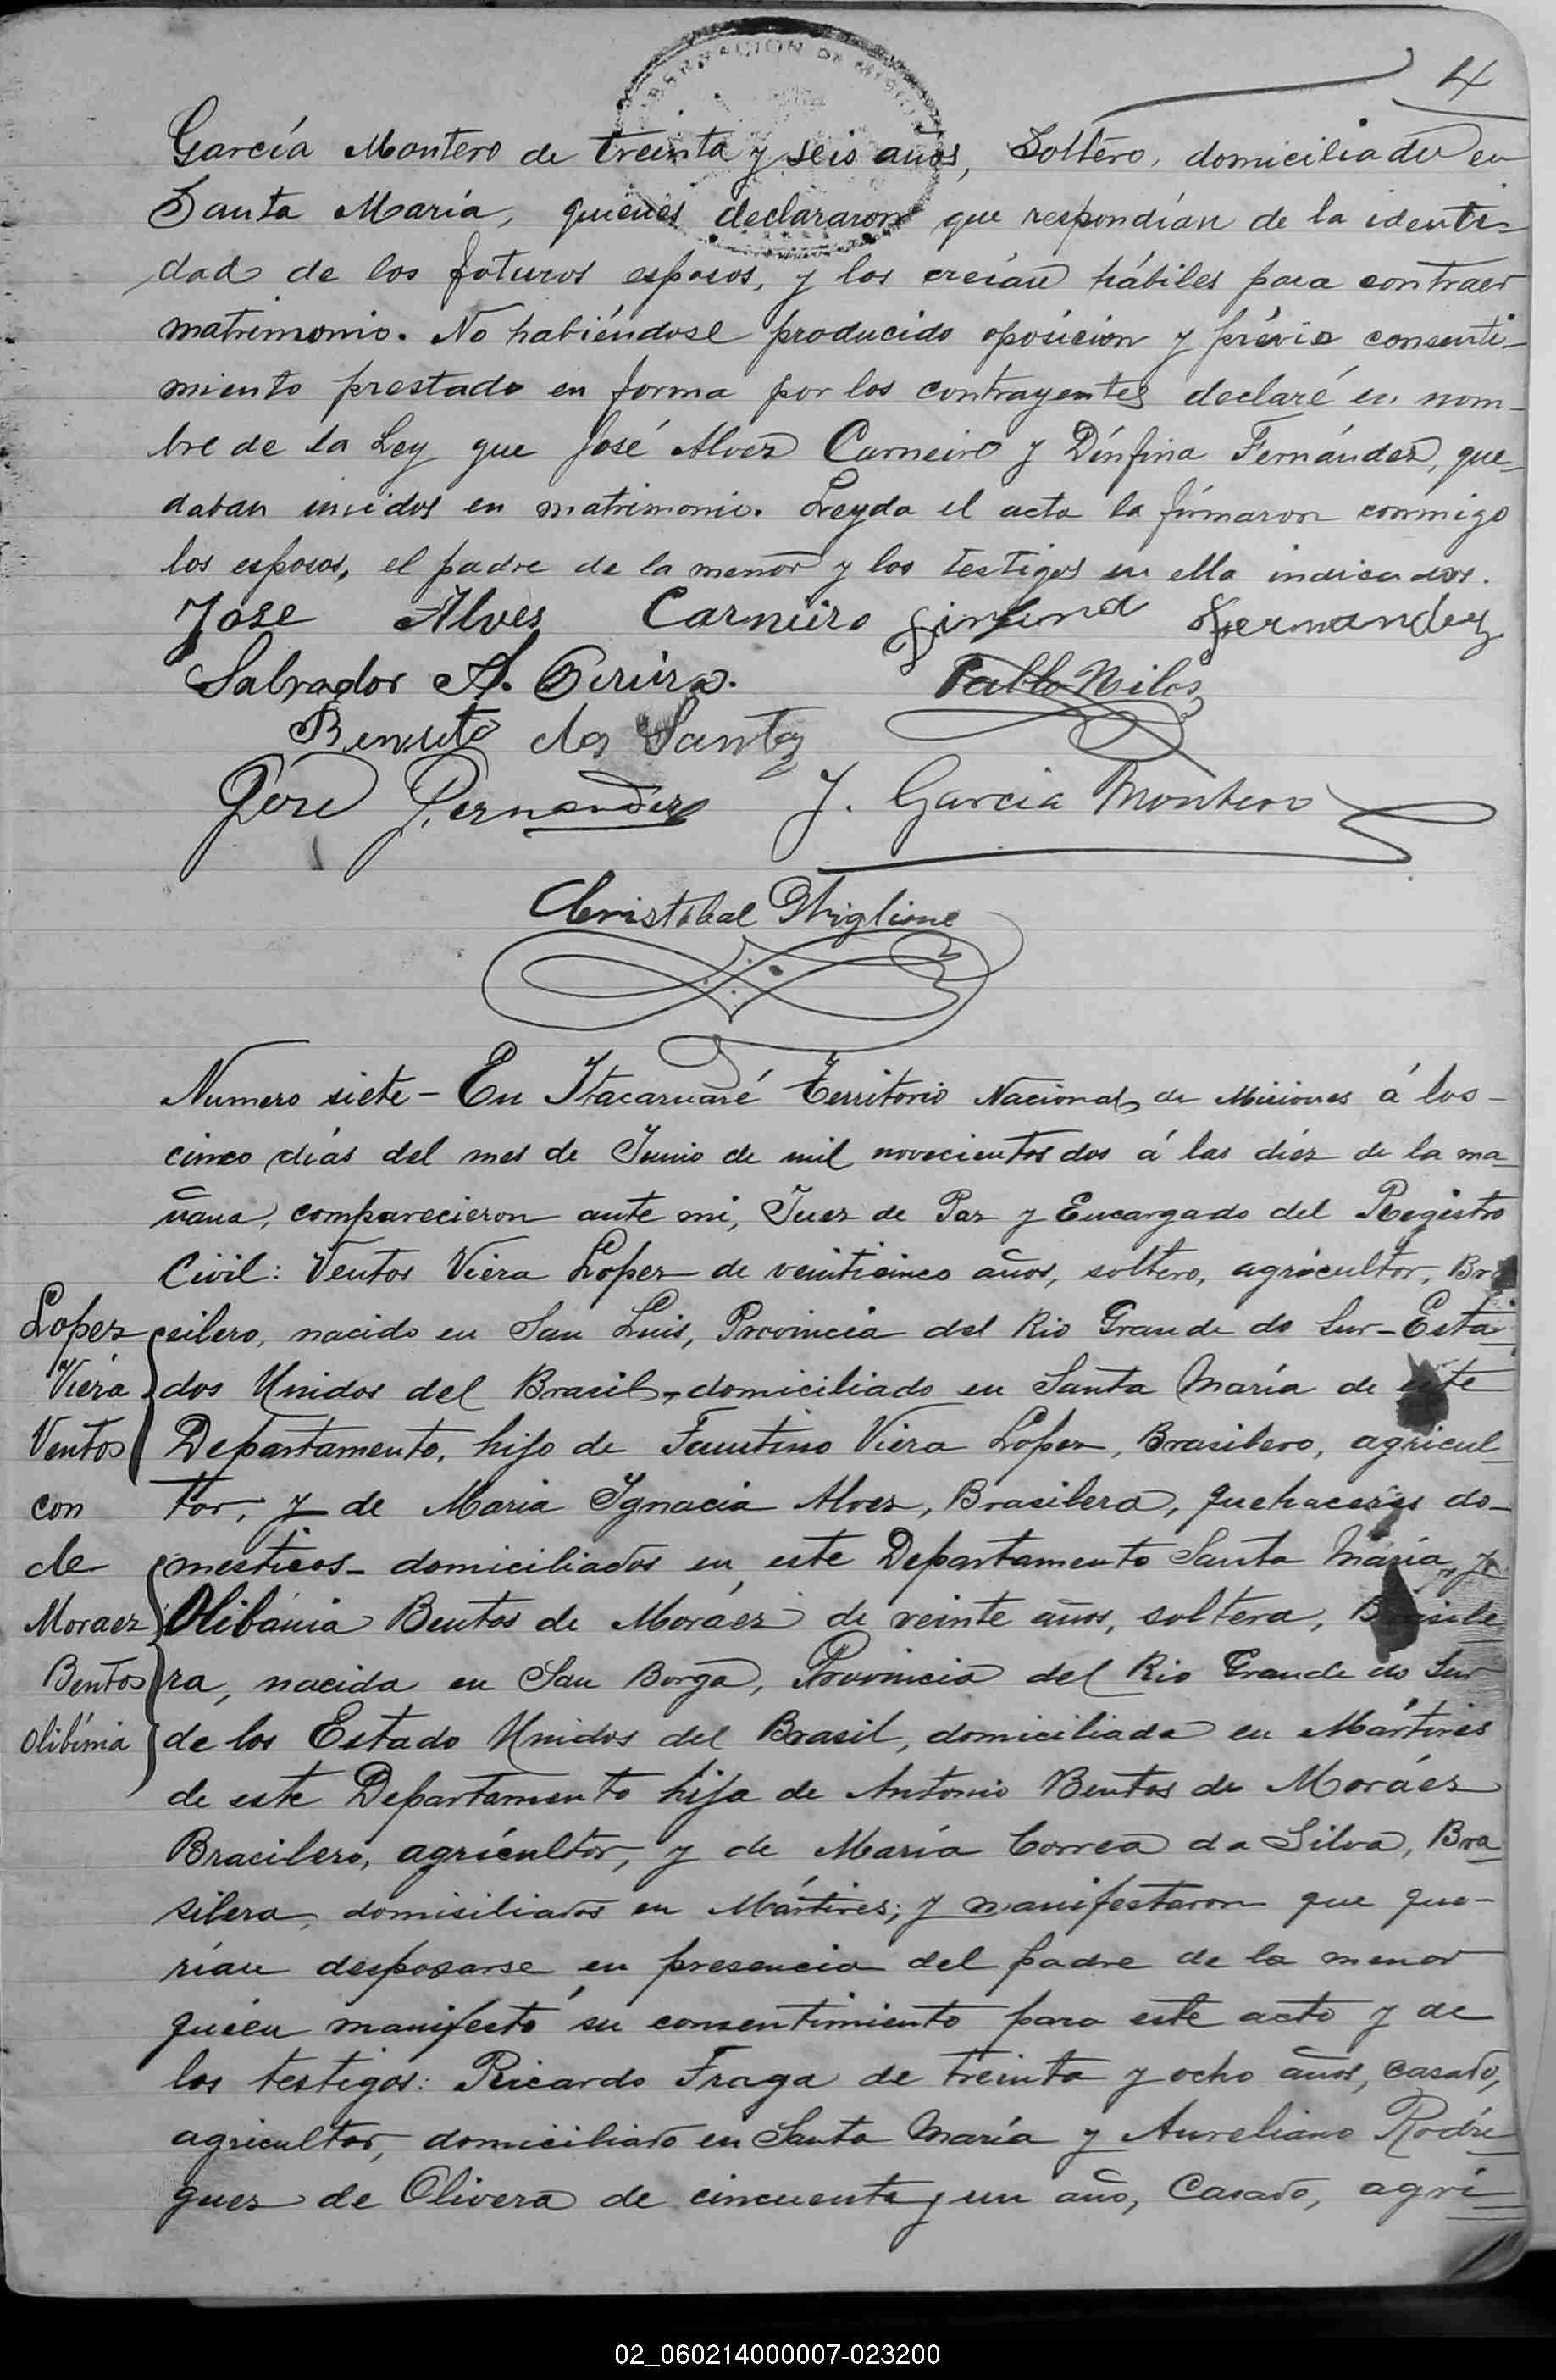 4
García Montero de treinta y seis años, Soltero, domiciliado en
Santa María, quienes declararon que respondían de la identi-
dad de los futuros esposos, y los creían hábiles para contraer
matrimonio. No habiéndose producido oposicion y prévio consenti-
miento prestado en forma por los contrayentes declaré en nom-
bre de la Ley que José Alvez Carneiro y Dinfina Fernández, que-
daban unidos en matrimonio. Leyda el acta la firmaron conmigo
los esposos, el padre de la menor y los testigos en ella indicados.
Jose Alves Carneiro Fernandez
Salvador A.
Pablo
Benuto dos Santos
José Fernandez J. Garcia Montero
Cristobal
Numero siete - En Itacaruaré Territorio Nacional de Misiones á los -
cinco días del mes de Junio de mil novecientos dos á las diéz de la ma-
ñana, comparecieron ante mi, Juez de Paz y Encargado del Registro
Civil: Ventos Viera Lopez de veinticinco años, soltero, agricultor, Bra
silero, nacido en San Luis, Provincia del Rio Grande do Sur - Esta
dos Unidos del Brasil, domiciliado en Santa María de este
Departamento, hijo de Faustino Viera Lopez, Brasilero, agricul-
tor, y de Maria Ygnacia Alvez, Brasilera, quehaceres do-
mesticos - domiciliados en este Departamento Santa María, y
Olibánia Bentos de Moráez de veinte años, soltera, Brasile
ra, nacida en San Borga, Provincia del Rio Grande do Sur
de los Estado Unidos del Brasil, domiciliada en Mártires
de este Departamento hija de Antonio Bentos de Moráez
Bracilero, agricultor, y de María Correa da Silva, Bra
silera, domisiliados en Mártires; y manifestaron que que-
rían desposarse en presencia del padre de la menor
quien manifestó su consentimiento para este acto y de
los testigos: Ricardo Fraga de treinta y ocho años, casado,
agricultor, domiciliado en Santa María y Aureliano Rodri
guez de Olivera de cincuenta y un año, Casado, agri
Lopez
Viéra
Ventos
con
de
Moraez
Bentos
Olibínia
02_060214000007-023200